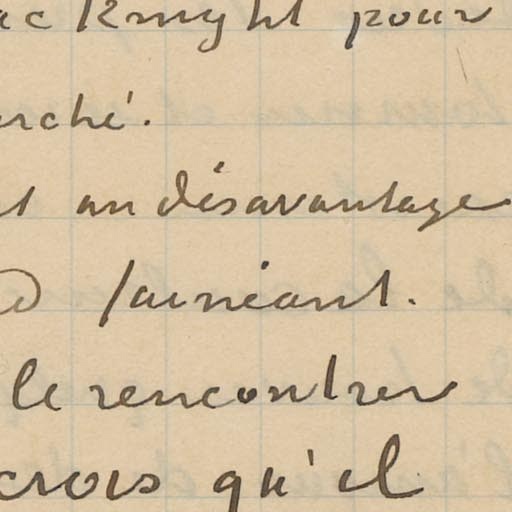 ac Knight pour
arché.
st un désavantage
fainéant.
le rencontrer
crois qu'il